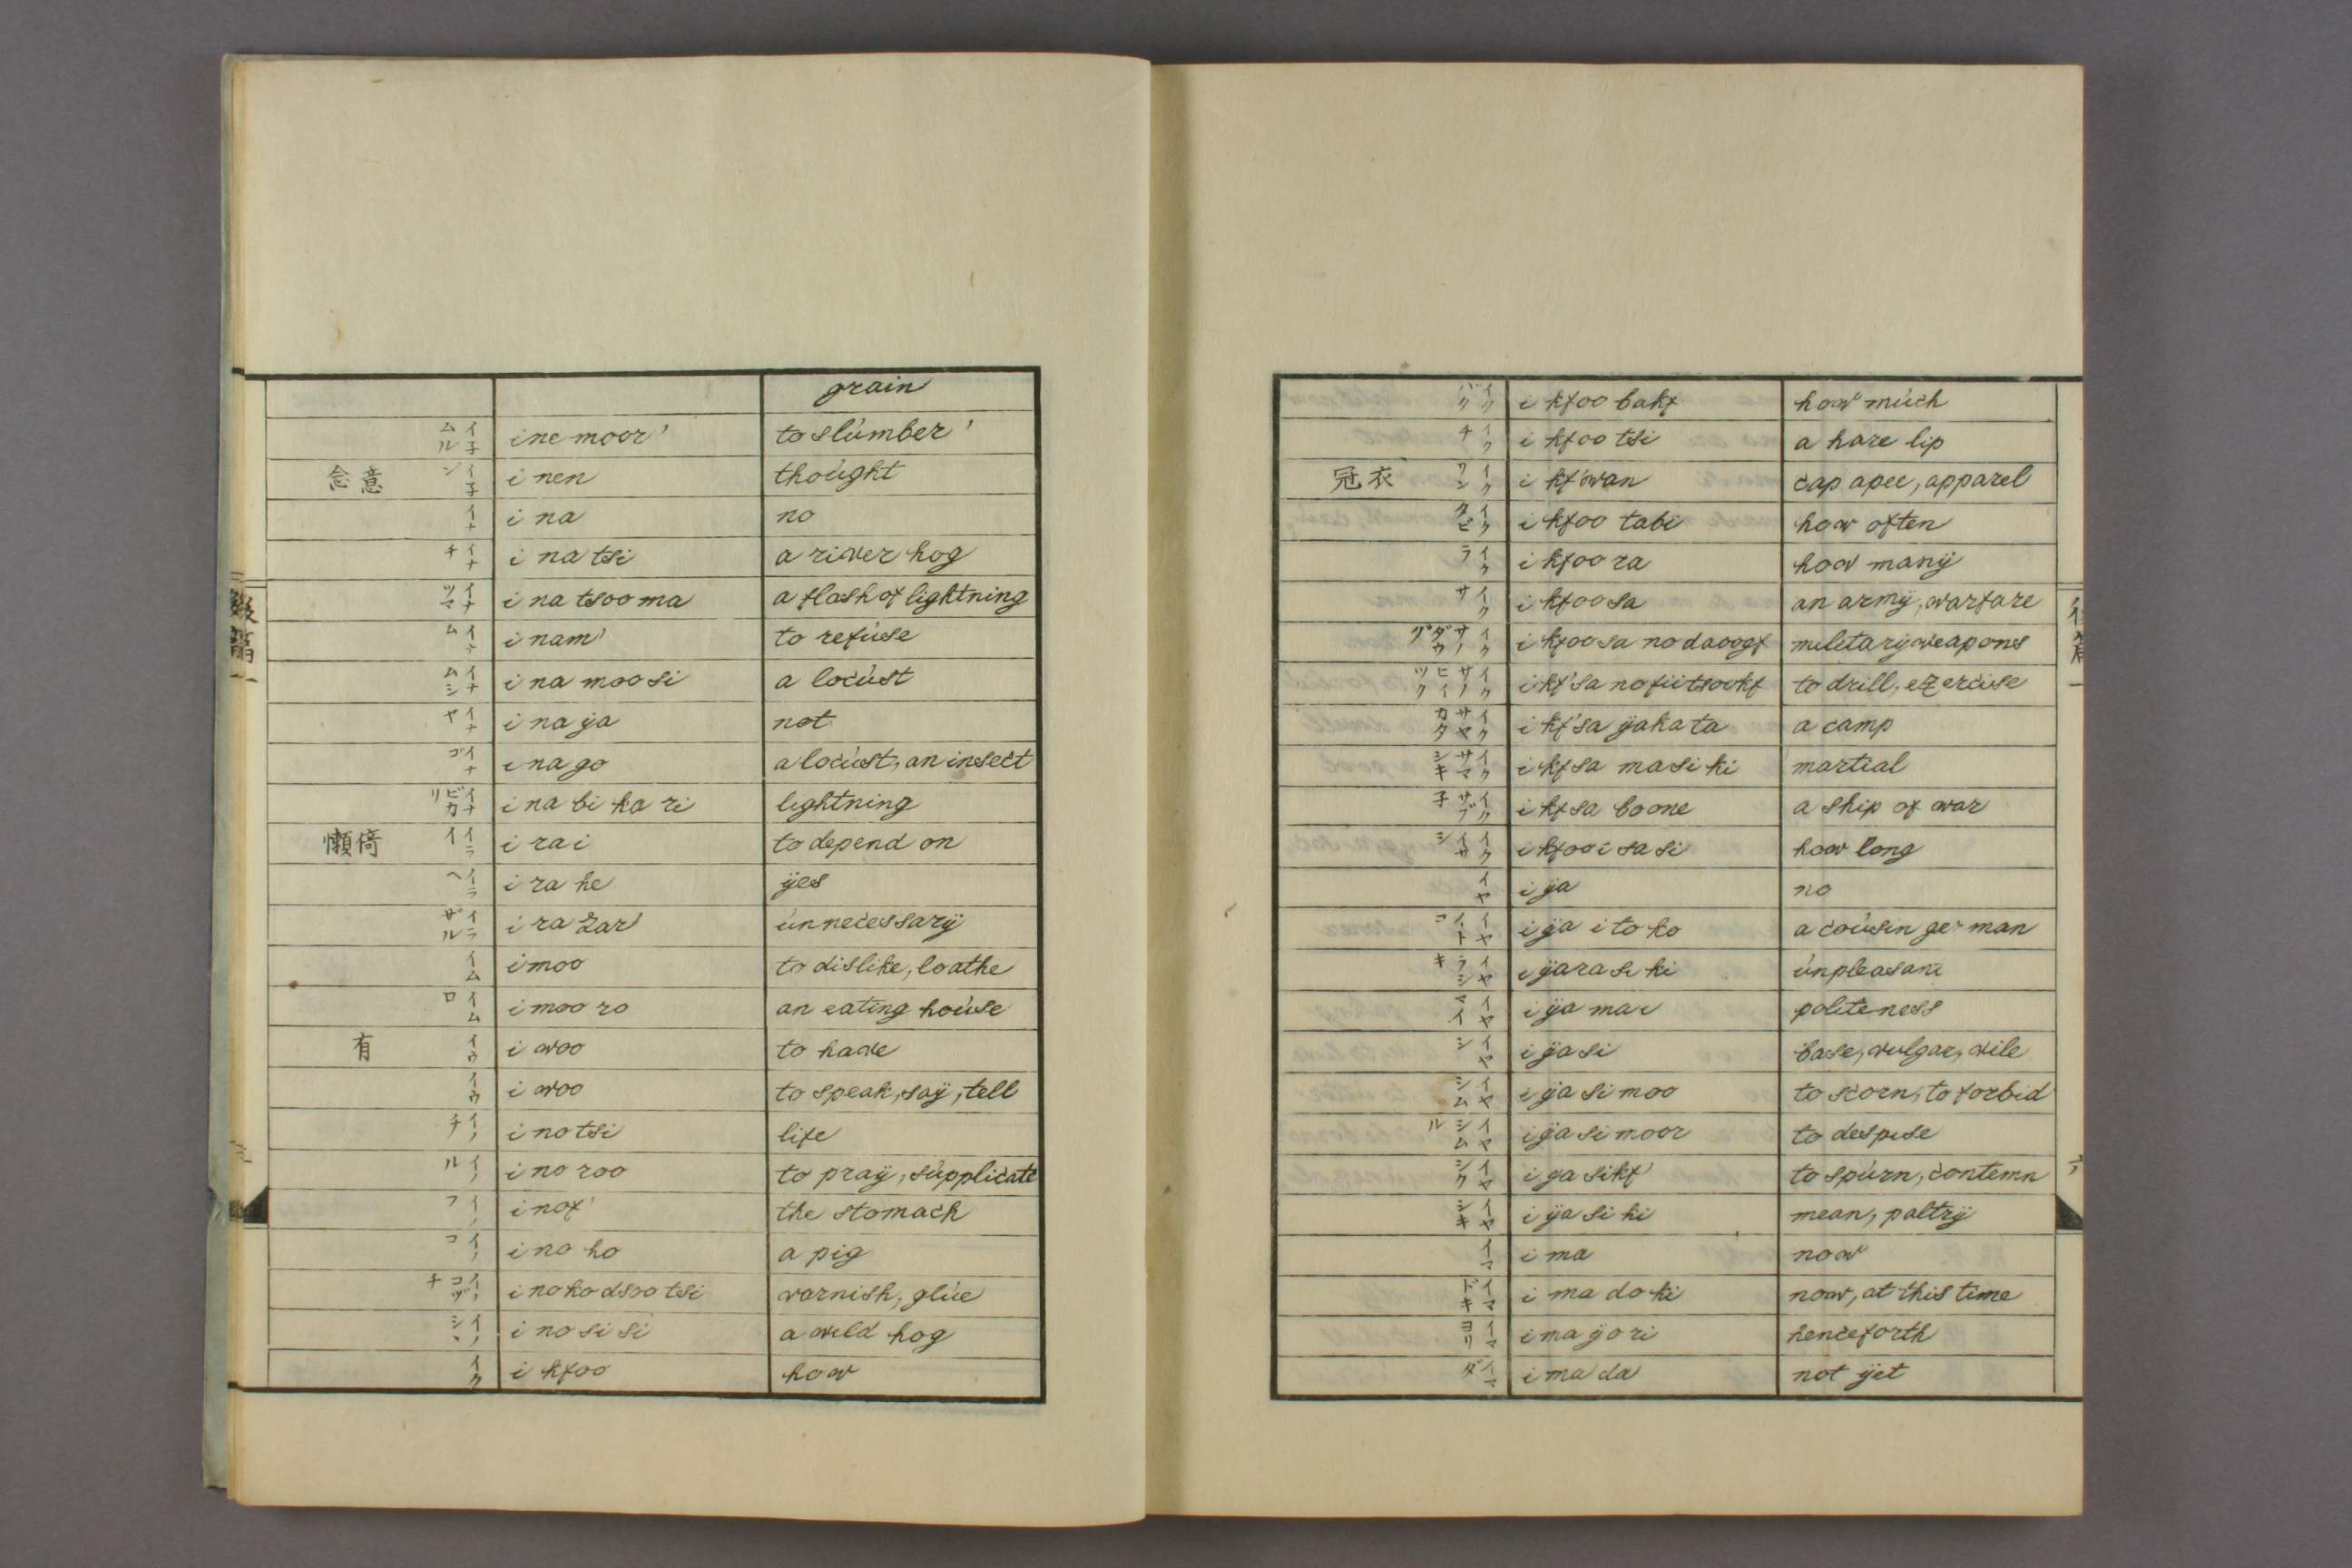 grain
イ子ムル ine moor' to slumber'
意念 イ子ン i nen thought
イナ i na no
イナチ i na tsi a river hog
イナツマ i na tsoo ma a flash of lightning
イナム i nam' to refuse
イナムシ i na moo si a locust
イナヤ i na ÿa not
イナゴ i na go a locust, an insect
イナビカリ i na bi ka ri lightning
倚懶 イライ i ra i to depend on
イラヘ i ra he ÿes
イラザル i ra zar' unnecessarÿ
イム i moo to dislike, loathe
イムロ i moo ro an eating house
有 イウ i woo to have
イウ i woo to speak, saÿ, tell
イノチ i no tsi life
イノル i no roo to praÿ, supplicate
イノフ i nof' the stomach
イノコ i no ko a pig
イノコヅチ i no ko dsoo tsi varnish, glue
イノシヽ i no si si a wild hog
イク i kfoo how
イクバク i kfoo bakf how much
イクチ i kfoo tsi a hare lip
衣冠 イクワン i kf'wan cap apee, apparel
イクタビ i kfoo tabi how often
イクラ i kfoo ra how manÿ
イクサ i kfoo sa an armÿ, warfare
イクサノダウグ i kfoo sa no daoogf militarÿ weapons
イクサノヒイツク i kf'sa no fii tsookf to drill, exercise
イクサヤカタ i kf'sa ÿaka ta a camp
イクサマシキ i kfsa masi ki martial
イクサブ子 i kfsa boone a ship of war
イクイサシ i kfoo i sa si how long
イヤ i ÿa no
イヤイトコ i ÿa i to ko a cousin german
イヤラシキ i ÿara si ki unpleasant
イヤマイ i ÿa mai politeness
イヤシ i ÿa si base, vulgar, vile
イヤシム i ÿa si moo to scorn, to forbid
イヤシムル i ÿa si moor to despise
イヤシク i ÿa sikf' to spurn, contemn
イヤシキ i ÿa si ki mean, paltrÿ
イマ i ma now
イマドキ i ma do ki now, at this time
イマヨリ i ma ÿo ri henceforth
イマダ i ma da not ÿet